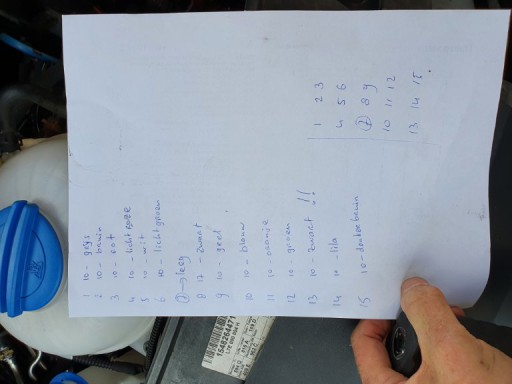 1 10 - grijs
2 10 - bruin
3 10 - rood
4 10 - lichtroze
5 10 - wit
6 10 - lichtgroen
7 → leeg
8 12 - zwart
9 10 - geel
10 10 - blauw
11 10 - oranje
12 10 - groen
13 10 - zwart !!
14 10 - lila
15 10 - donkerbruin
1 2 3
4 5 6
7 8 9
10 11 12
13 14 15